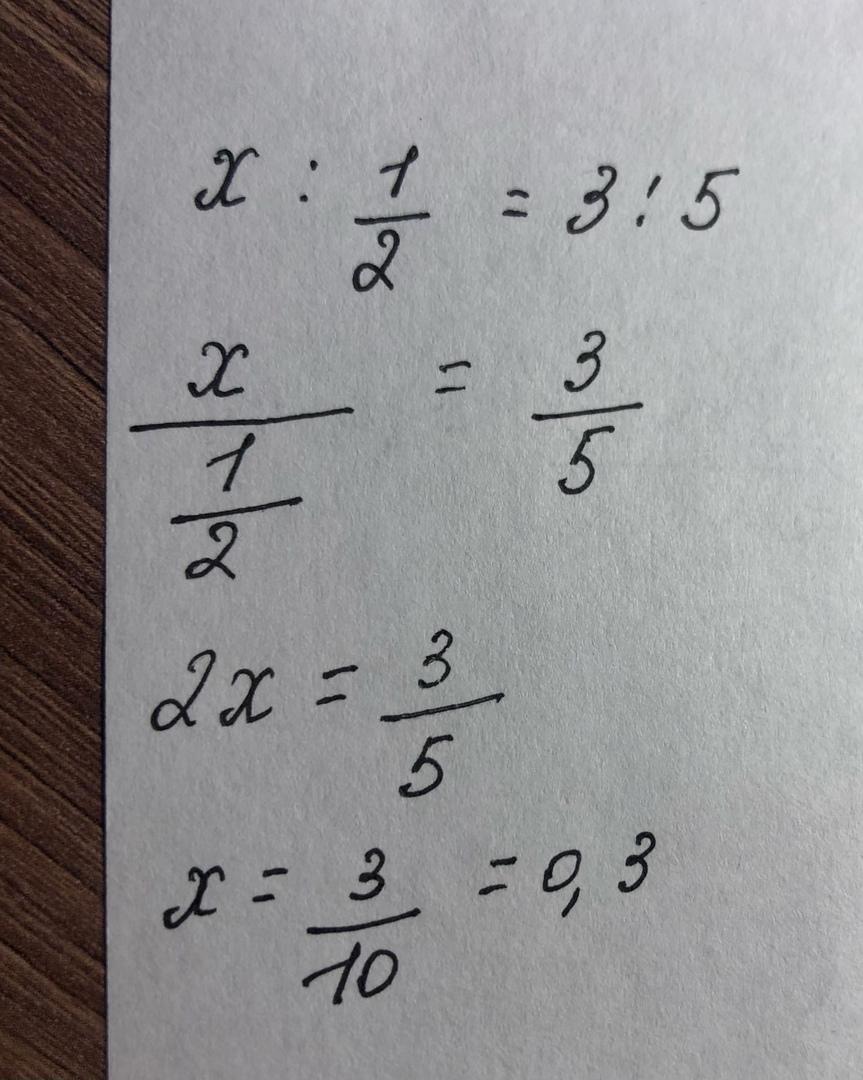 x : 1/2 = 3 : 5
x/(1/2) = 3/5
2x = 3/5
x = 3/10 = 0,3